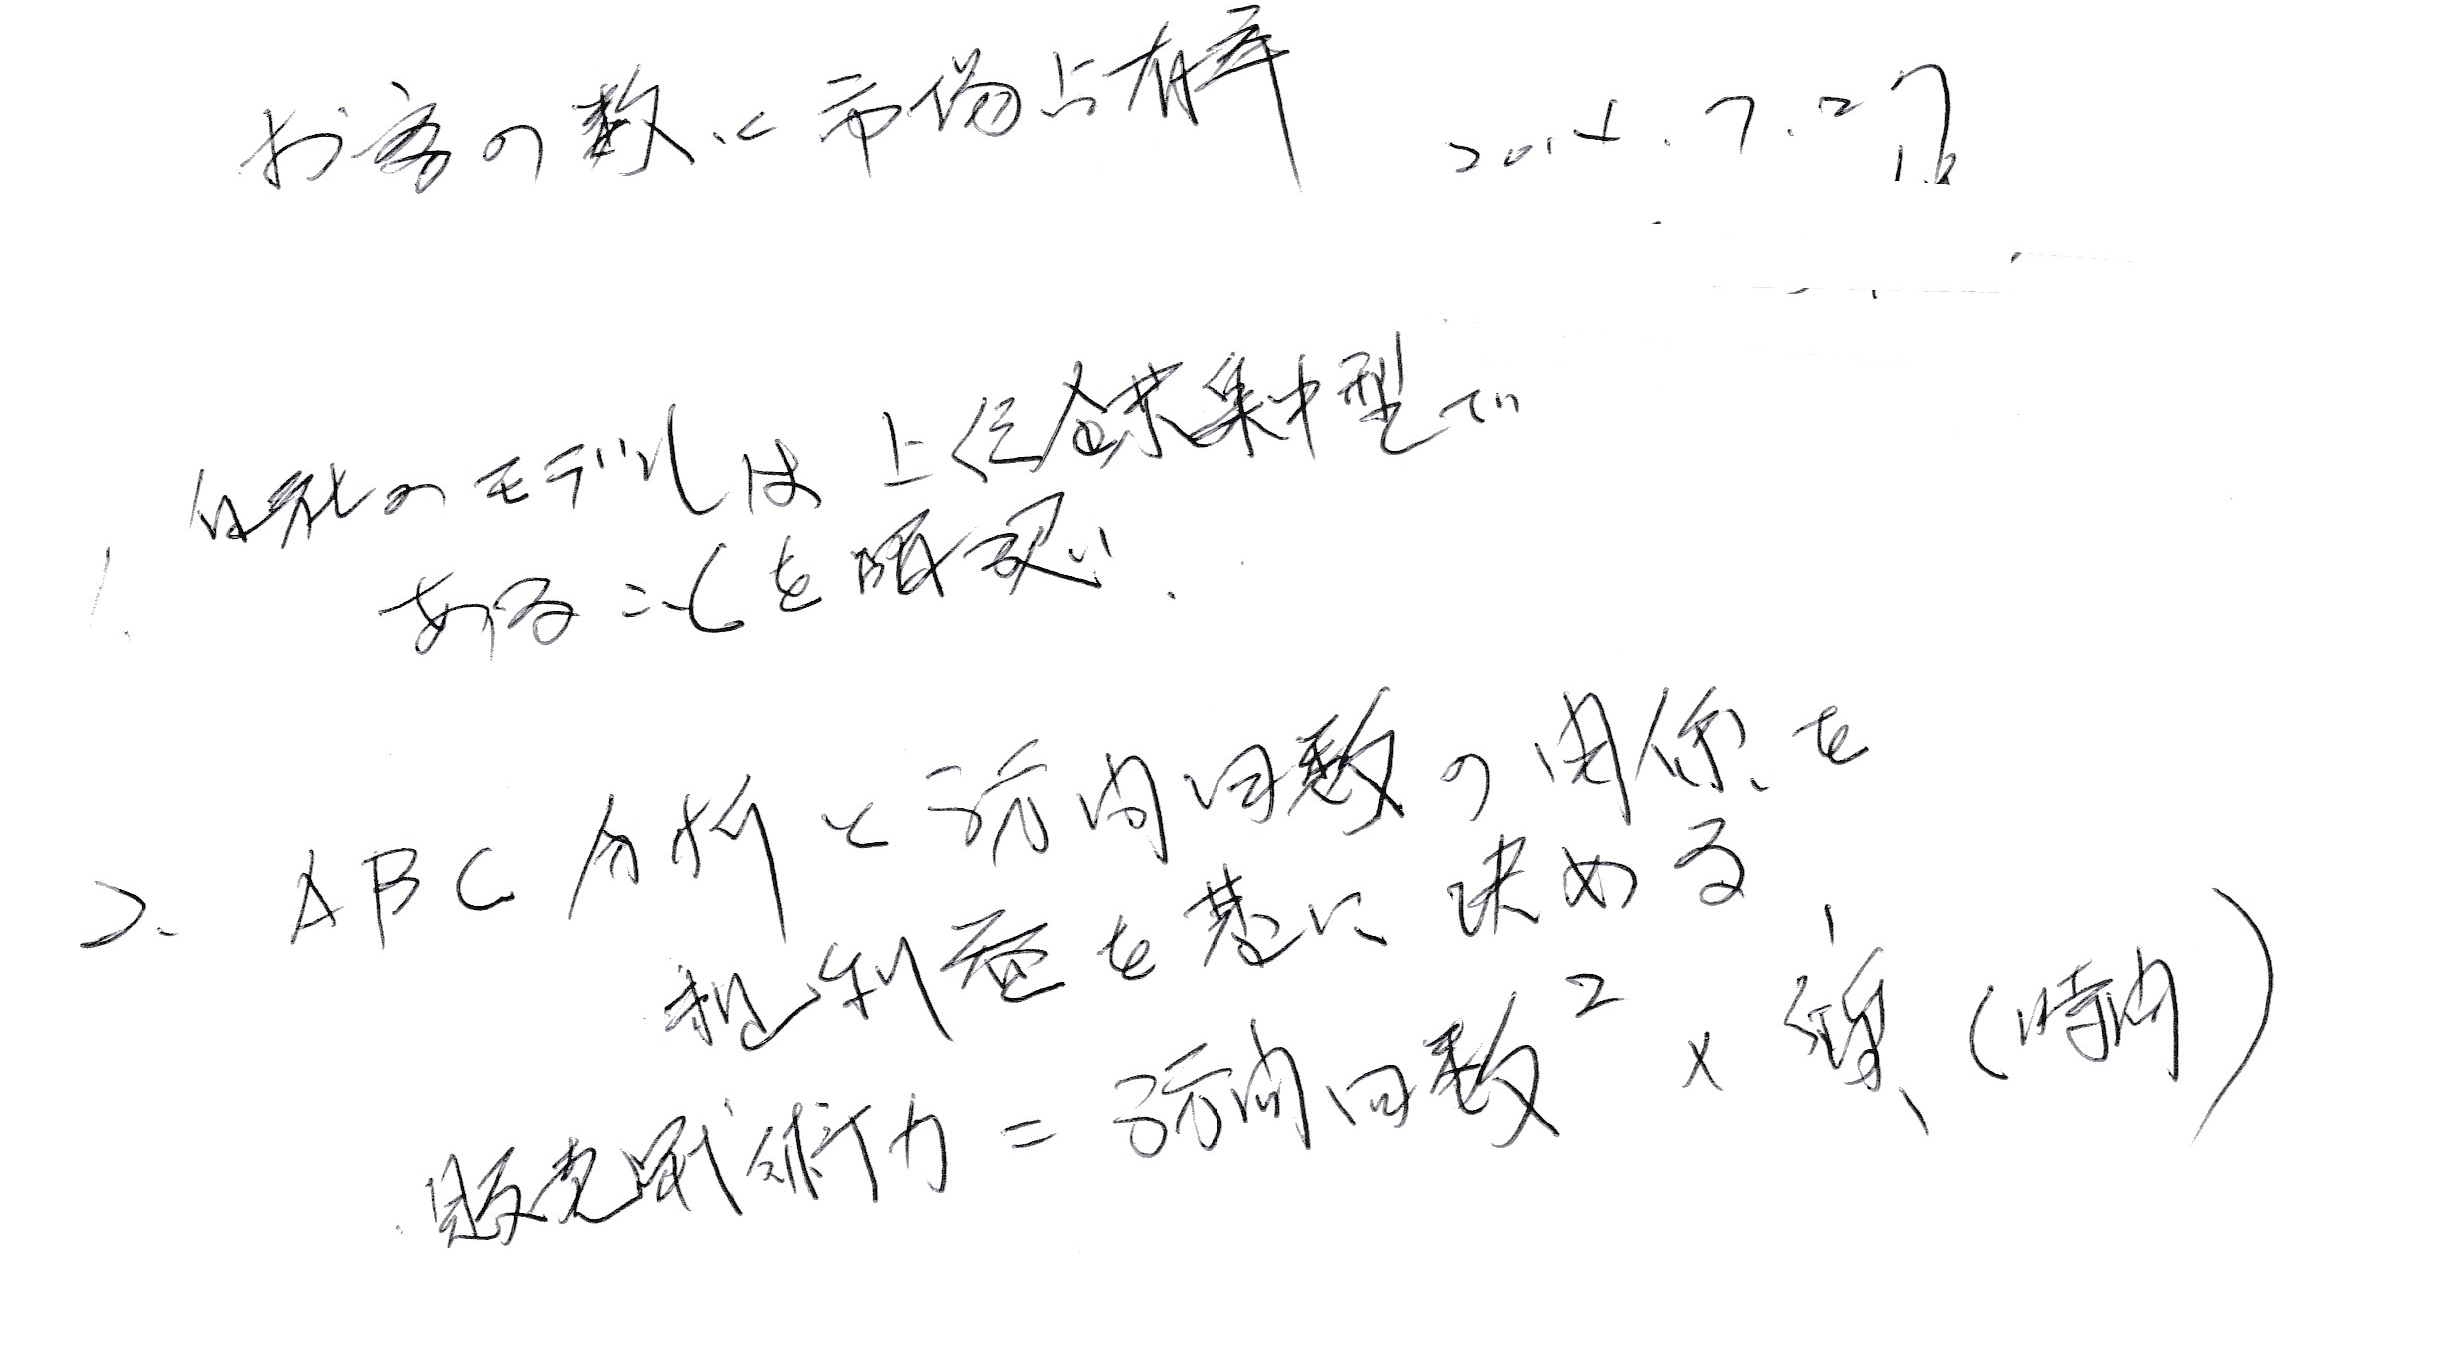 お客の数と市場占有率
1. 自社のモデルは上位企業集中型で
あることを確認.
2. ABC分析と訪問回数の関係を
粗利益を基に決める
販売戦術力 = 訪問回数² × 質(時間)